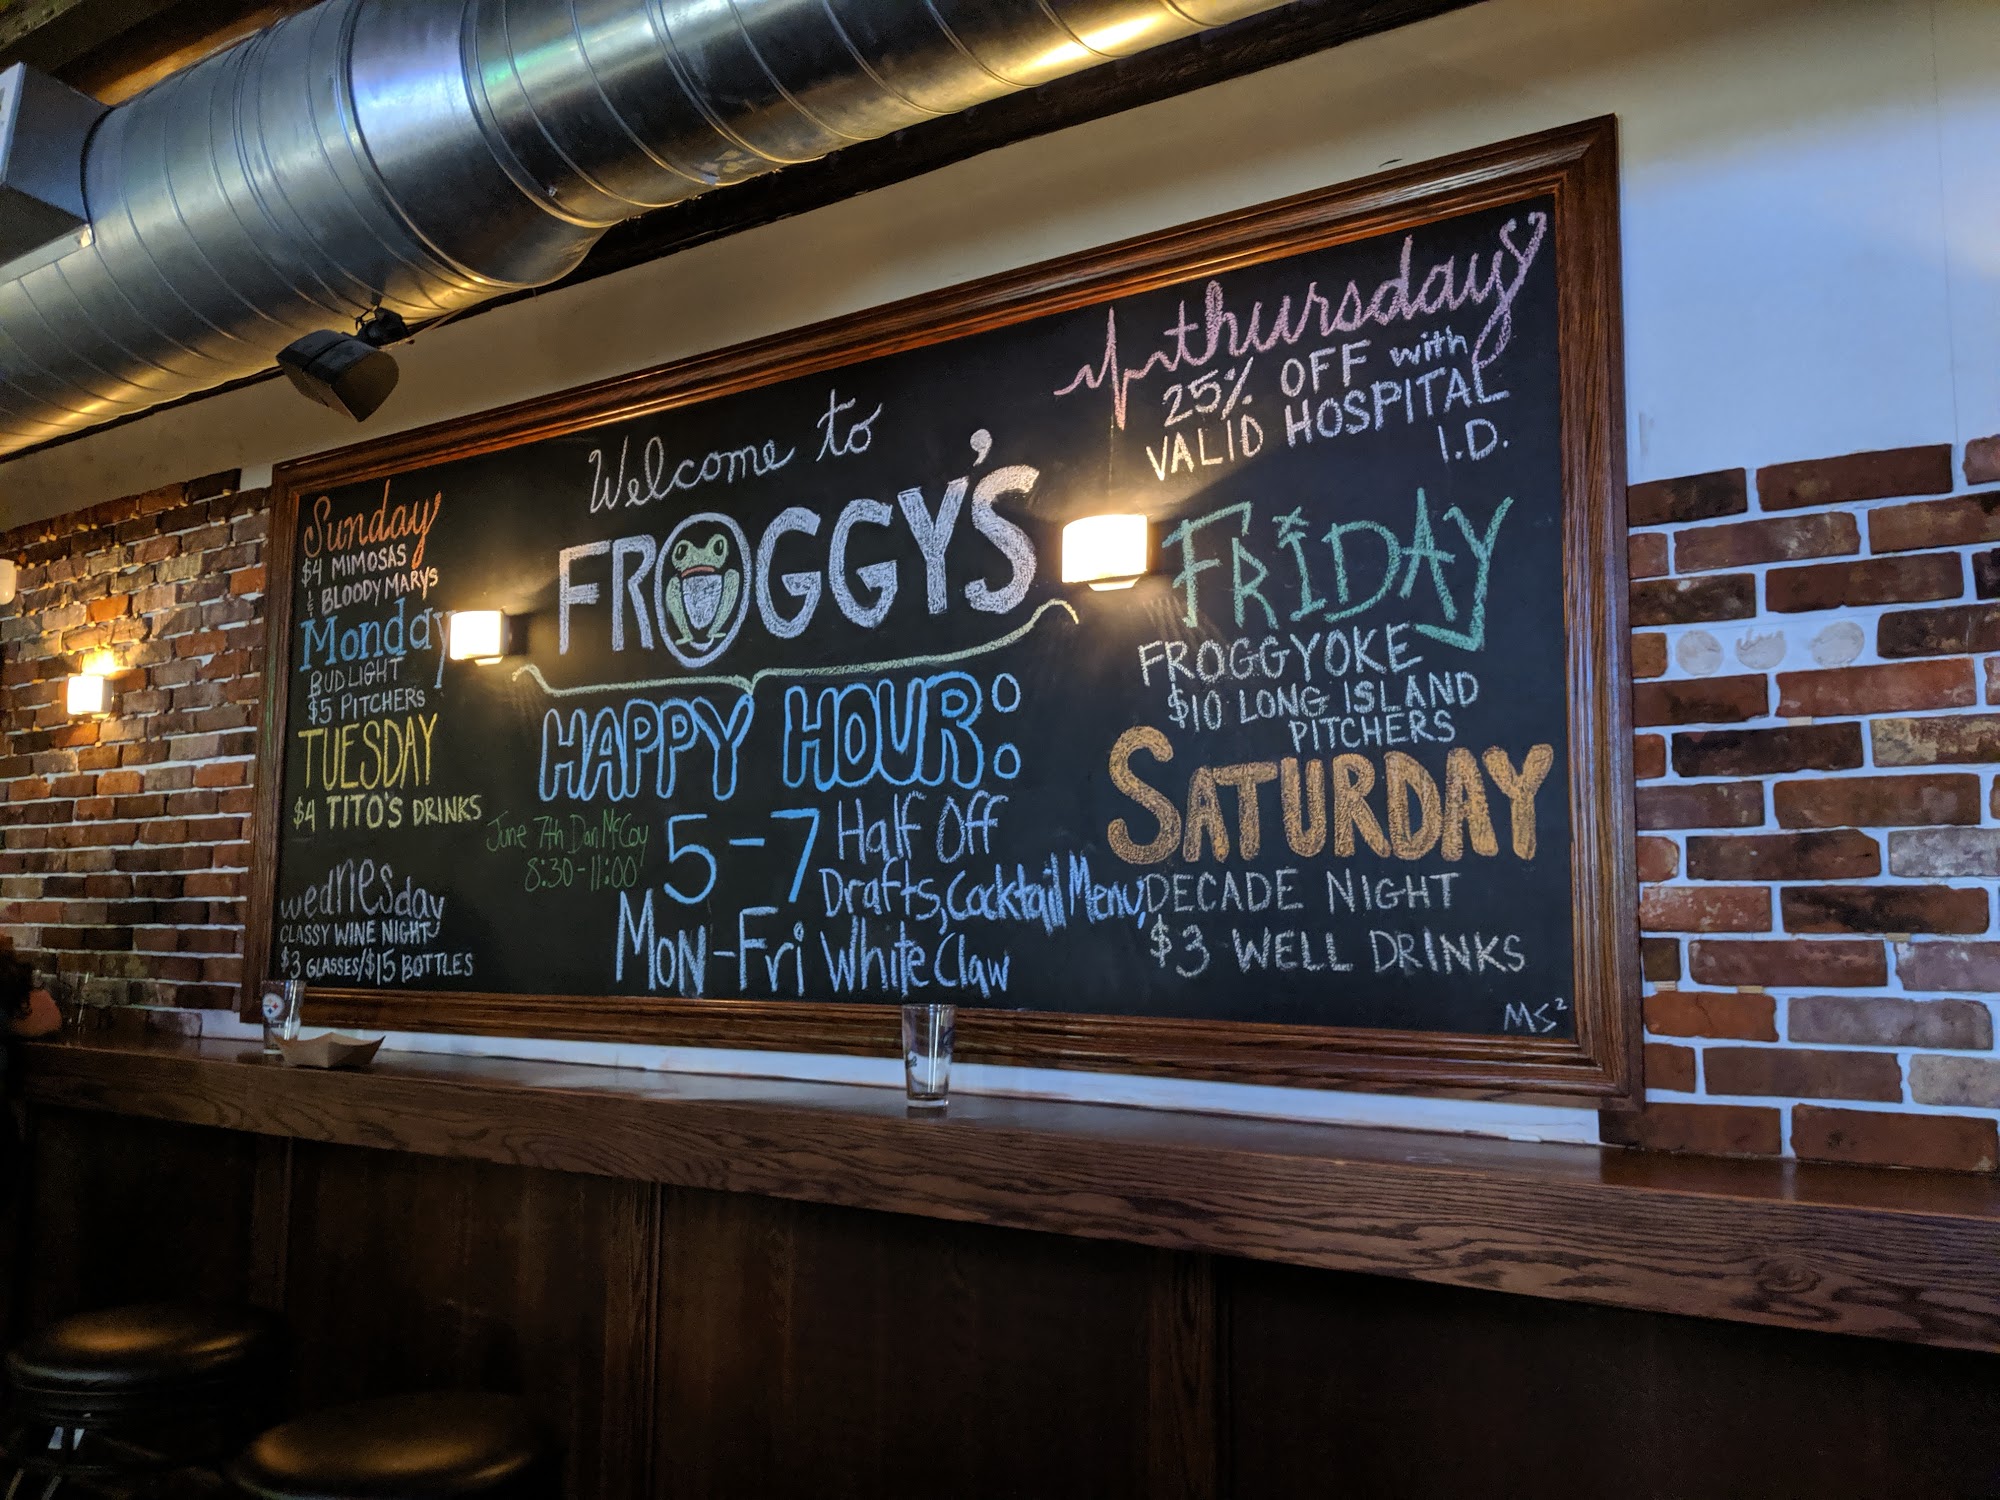 Welcome to
FROGGY'S
HAPPY HOUR:
5-7
Mon-Fri
Half Off
Drafts, Cocktail Menu,
White Claw
June 7th Dan McCoy
8:30-11:00
Sunday
$4 MIMOSAS
& BLOODY MARYS
Monday
BUD LIGHT
$5 PITCHERS
TUESDAY
$4 TITO'S DRINKS
wednesday
CLASSY WINE NIGHT
$3 GLASSES/$15 BOTTLES
thursday
25% OFF with
VALID HOSPITAL
I.D.
FRiDAY
FROGGYOKE
$10 LONG ISLAND
PITCHERS
SATURDAY
DECADE NIGHT
$3 WELL DRINKS
MS²